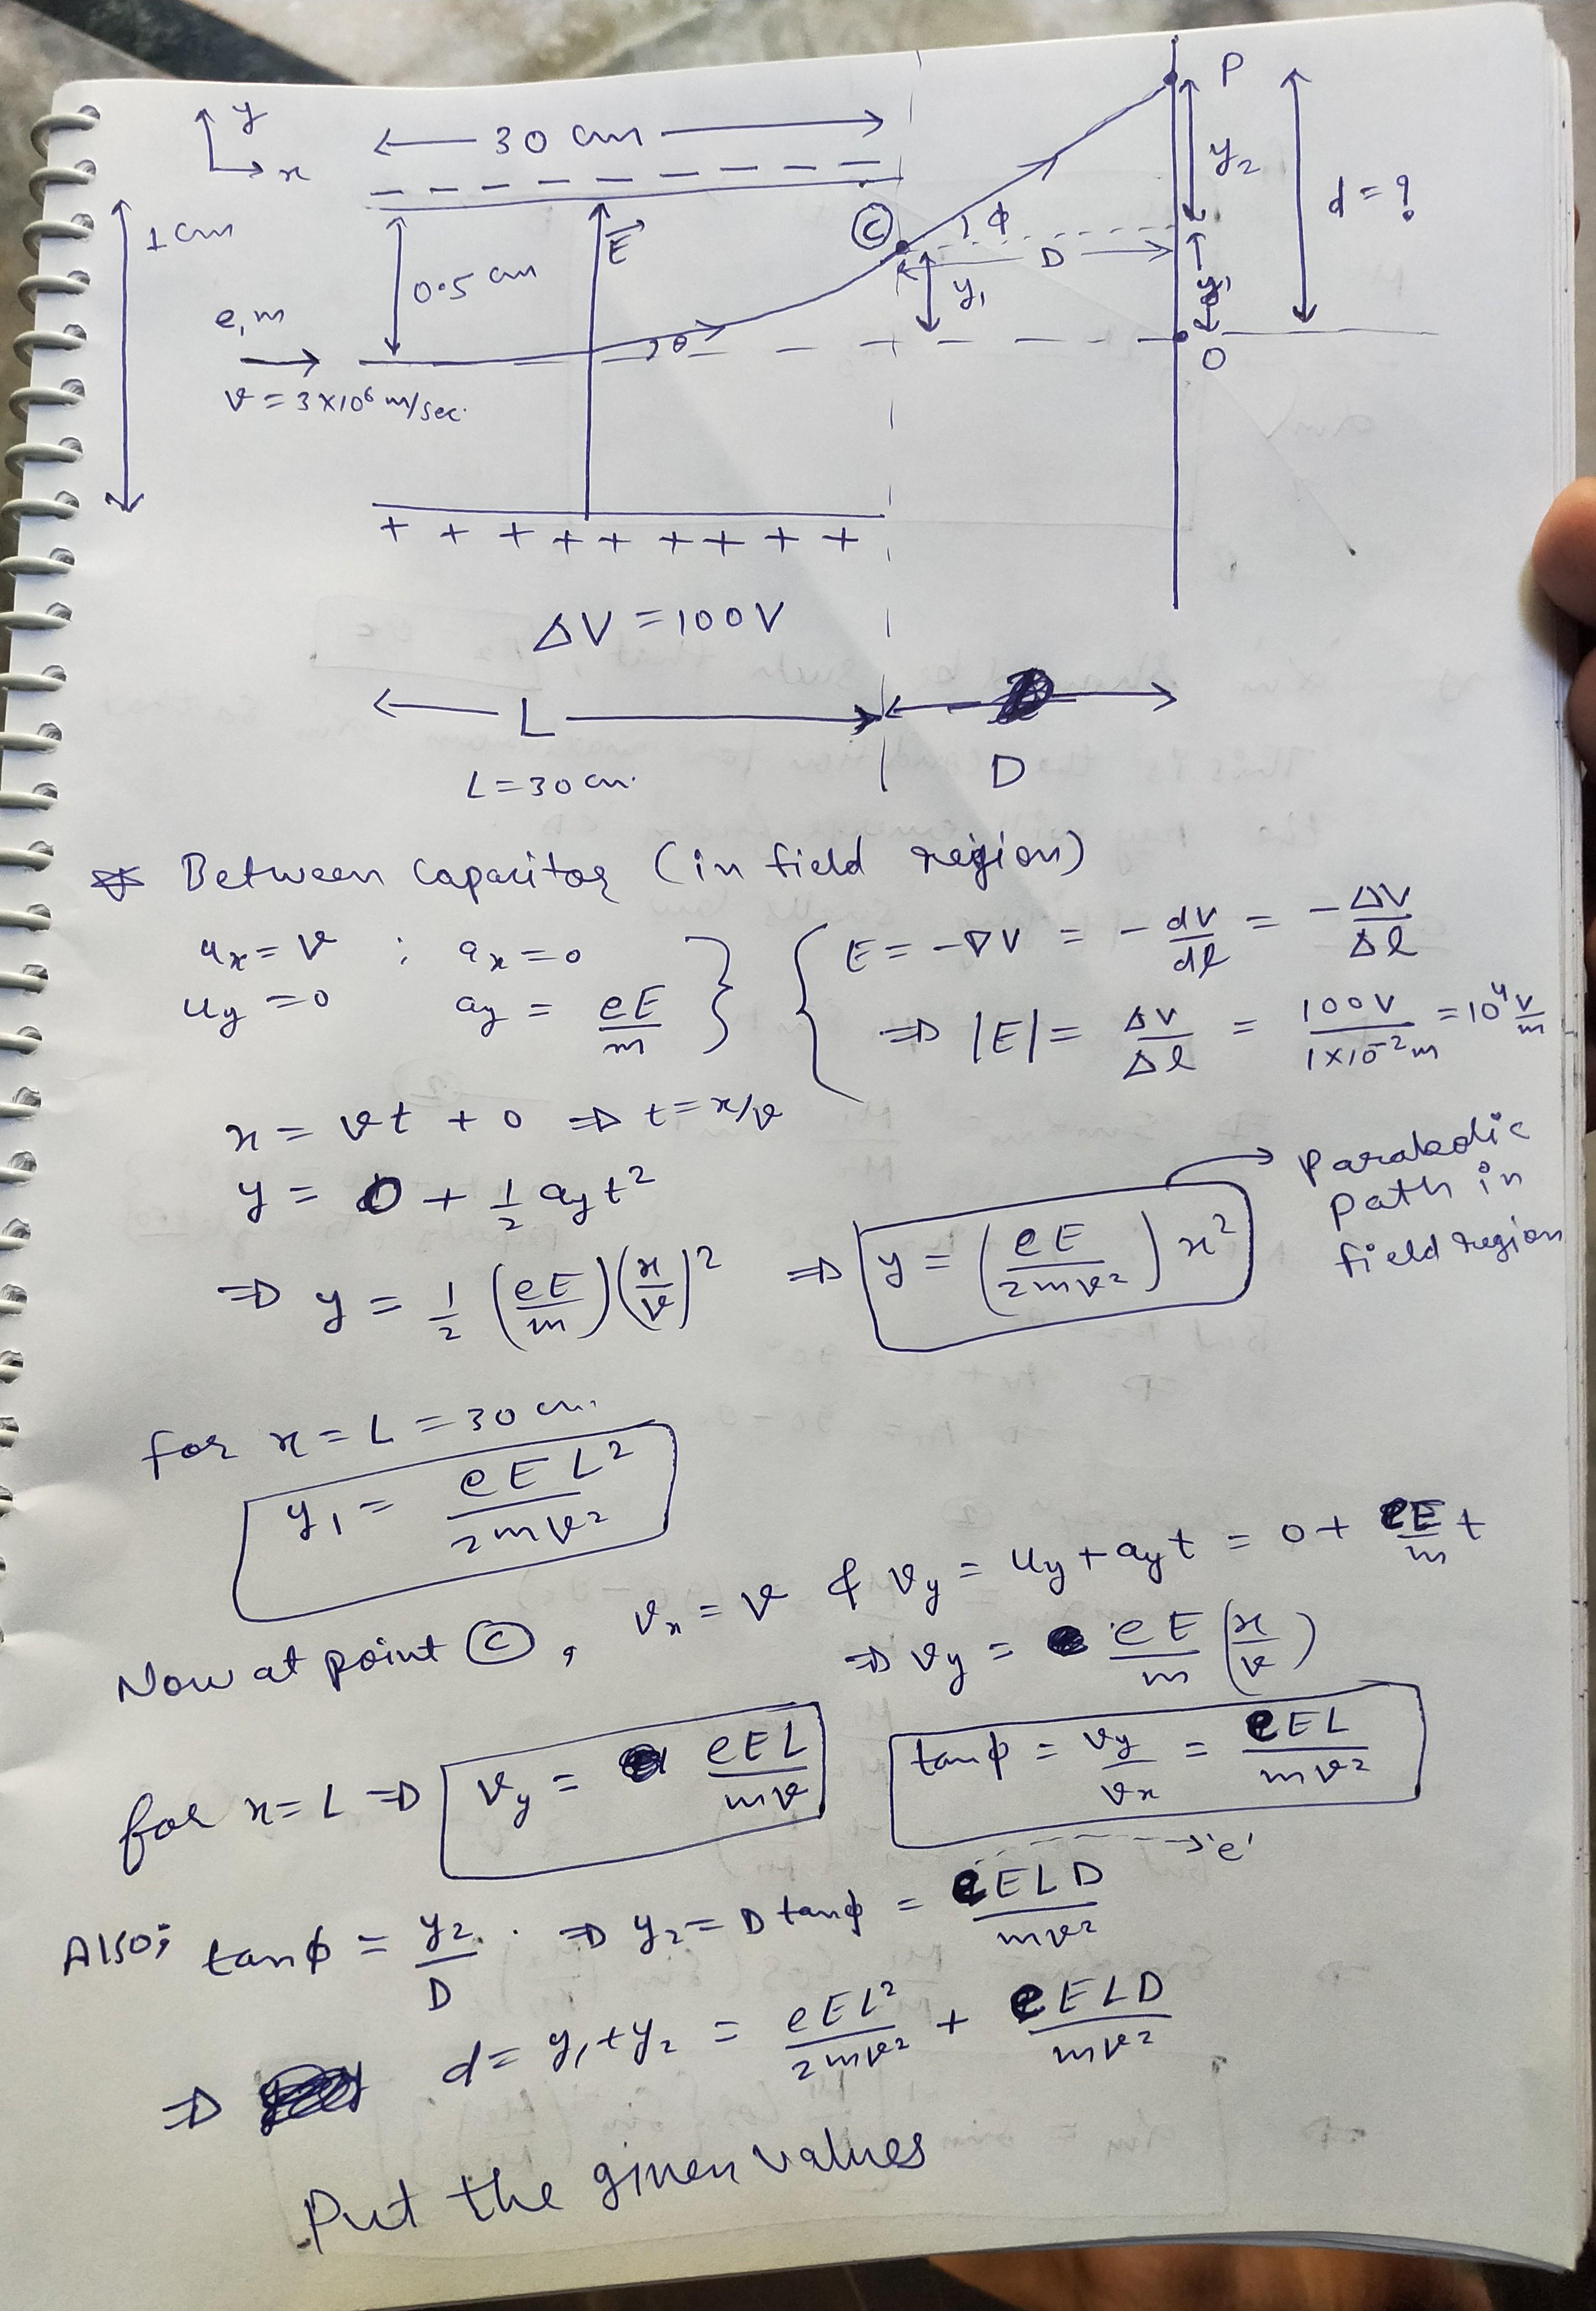 y
x
30 cm
P
y₂
d = ?
1 cm
0.5 cm
E⃗
C
ϕ
D
y₁
y₁
e, m
θ
O
v = 3×10⁶ m/sec.
− − − − − − − − −
+ + + + + + + + +
ΔV = 100V
L
L = 30 cm.
D
Between capacitor (in field region)
uₓ = v ; aₓ = 0
u_y = 0 a_y = eE/m
E = −∇V = − dV/dl = − ΔV/Δl
⇒ |E| = ΔV/Δl = 100V/1×10⁻²m = 10⁴ V/m
x = vt + 0 ⇒ t = x/v
y = 0 + 1/2 a_y t²
⇒ y = 1/2 (eE/m)(x/v)² ⇒ y = (eE/2mv²) x²
parabolic
path in
field region
for x = L = 30 cm.
y₁ = eEL²/2mv²
Now at point C, vₓ = v & v_y = u_y + a_y t = 0 + eE/m t
⇒ v_y = eE/m (x/v)
for x = L ⇒ v_y = eEL/mv tanϕ = v_y/vₓ = eEL/mv²
'e'
Also; tanϕ = y₂/D. ⇒ y₂ = D tanϕ = eELD/mv²
⇒ d = y₁ + y₂ = eEL²/2mv² + eELD/mv²
Put the given values